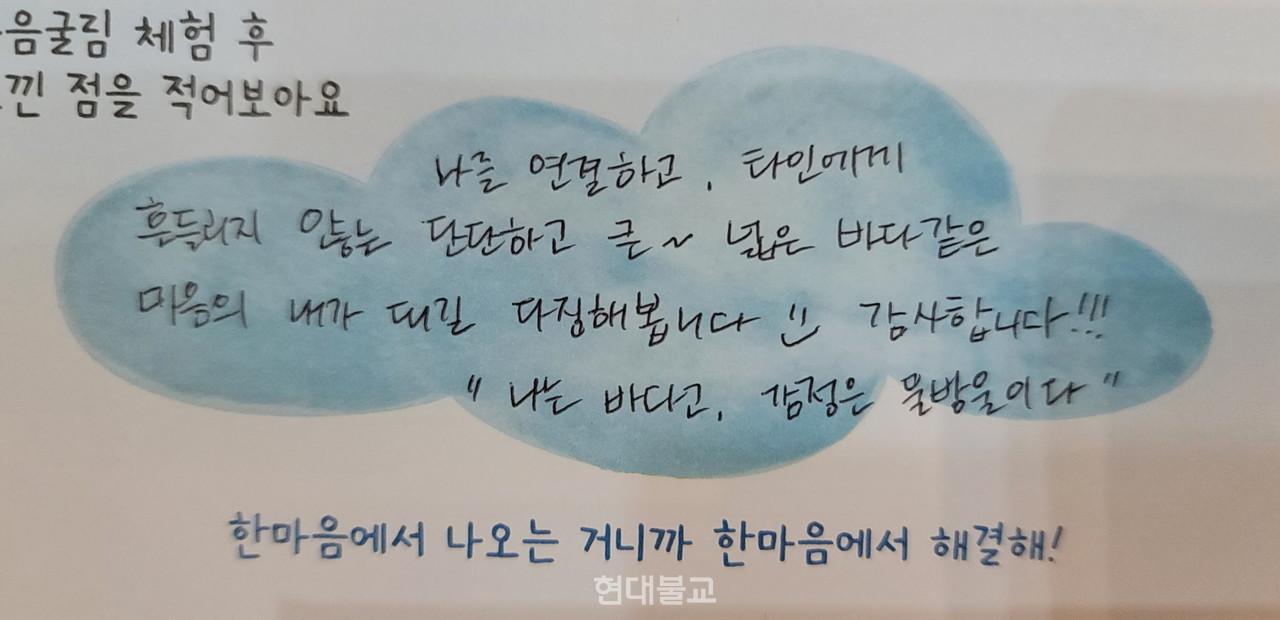 음굴림 체험 후
낀 점을 적어보아요
나를 연결하고, 타인에게
흔들리지 않는 단단하고 큰~ 넓은 바다같은
마음의 내가 되길 다짐해봅니다 :) 감사합니다!!!
"나는 바다고, 감정은 물방울이다"
한마음에서 나오는 거니까 한마음에서 해결해!
현대불교